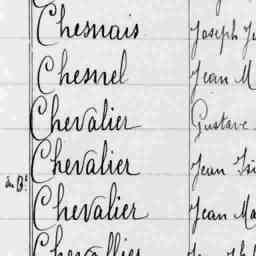 Chesnais Joseph
Chesnel Jean M
Chevalier Gustave
Chevalier Jean
Chevalier Jean Ma